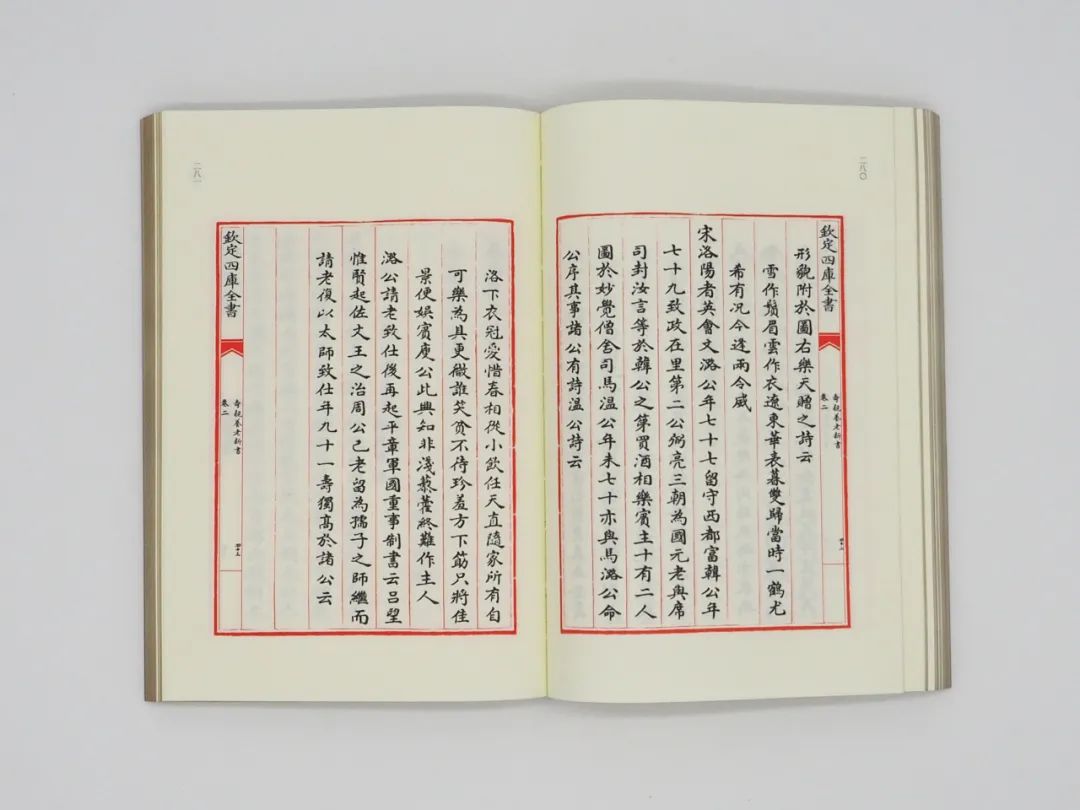 二八〇
欽定四庫全書
壽親養老新書
卷二
形貌附於圖右樂天贈之詩云
雪作鬚眉雲作衣遼東華表暮雙歸當時一鶴尤
希有况今逢兩令威
宋洛陽耆英會文潞公年七十七留守西都富韓公年
七十九致政在里第二公弼亮三朝為國元老與席
司封汝言等於韓公之第買酒相樂賓主十有二人
圖於妙覺僧舍司馬温公年未七十亦與焉潞公命
公序其事諸公有詩溫公詩云
二八一
洛下衣冠愛惜春相從小飲任天真隨家所有自
可樂為具更微誰笑貧不待珍羞方下筯只將佳
景便娱賓庾公此興知非淺藜藿終難作主人
潞公請老致仕後再起平章軍國重事制書云吕望
惟賢起佐文王之治周公已老留為孺子之師繼而
請老復以太師致仕年九十一壽獨髙於諸公云
欽定四庫全書
壽親養老新書
卷二